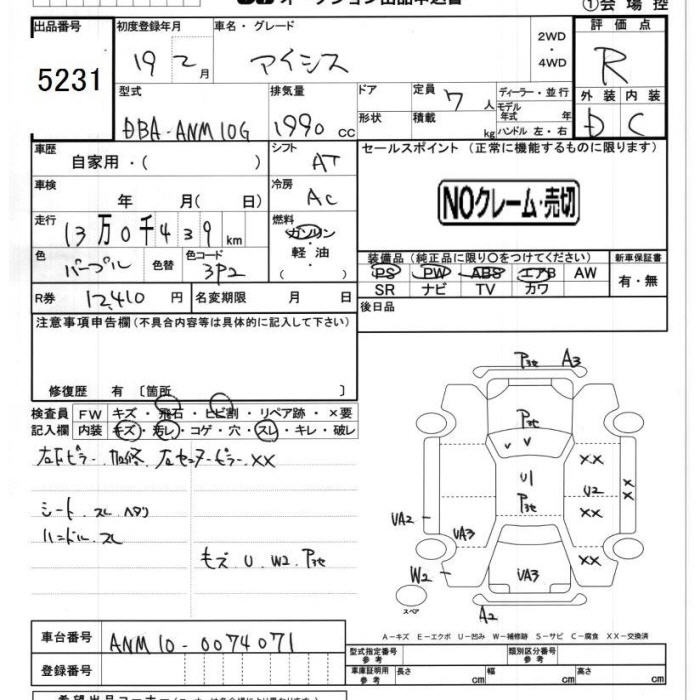 ①会場控
出品番号 初度登録年月 車名・グレード 2WD ・ 4WD 評価点
5231 19 2月 アイシス R
型式 排気量 ドア 定員 7人 ディーラー・並行 外装 内装
DBA-ANM10G 1990cc 形状 積載 kg モデル年式 年 ハンドル 左・右 D C
車歴 自家用・( ) シフト AT セールスポイント (正常に機能するものに限ります)
車検 年 月( 日) 冷房 AC
NOクレーム・売切
走行 13万0千439km 燃料 ガソリン 軽油 ・( )
色 パープル 色替 色コード 3P2
装備品 (純正品に限り〇をつけてください) 新車保証書
PS PW ABS エアB AW 有・無
SR ナビ TV カワ
R券 12,410円 名変期限 月 日 後日品
注意事項申告欄 (不具合内容等は具体的に記入して下さい)
修復歴 有 〔箇所 〕
検査員 FW キズ・飛石・ヒビ割・リペア跡・×要
記入欄 内装 キズ・汚レ・コゲ・穴・スレ・キレ・破レ
シート スレ ヘタリ
ハンドル スレ
キズ U W2 Pｽｾ
A3
V V
U1
XX
U2
XX
XX
XX
UA2
UA3
W2
UA3
A2
スペア
A-キズ E-エクボ U-凹み W-補修跡 S-サビ C-腐食 XX-交換済
車台番号 ANM10-0074071
型式指定番号 参考 類別区分番号 参考
登録番号 車庫証明用 参考 長さ cm 幅 cm 高さ cm